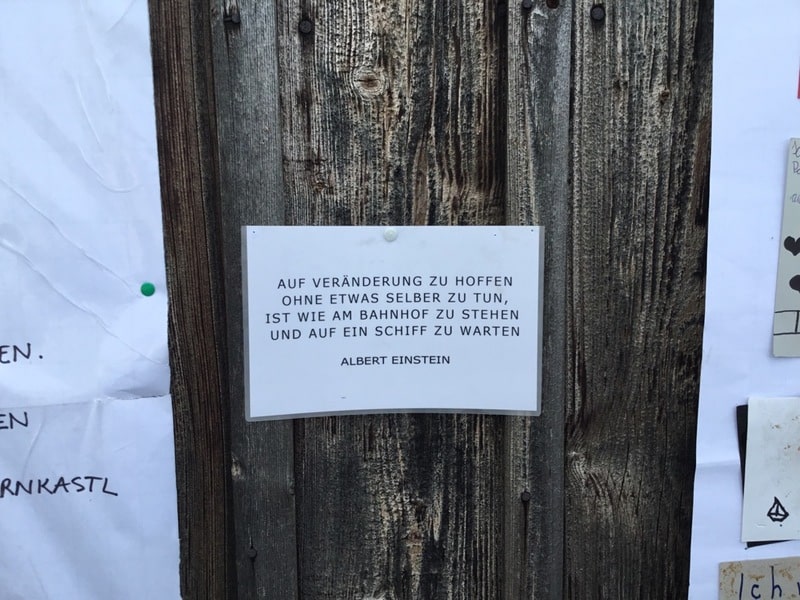 AUF VERÄNDERUNG ZU HOFFEN
OHNE ETWAS SELBER ZU TUN,
IST WIE AM BAHNHOF ZU STEHEN
UND AUF EIN SCHIFF ZU WARTEN
ALBERT EINSTEIN
EN.
EN
RNKASTL
Ich